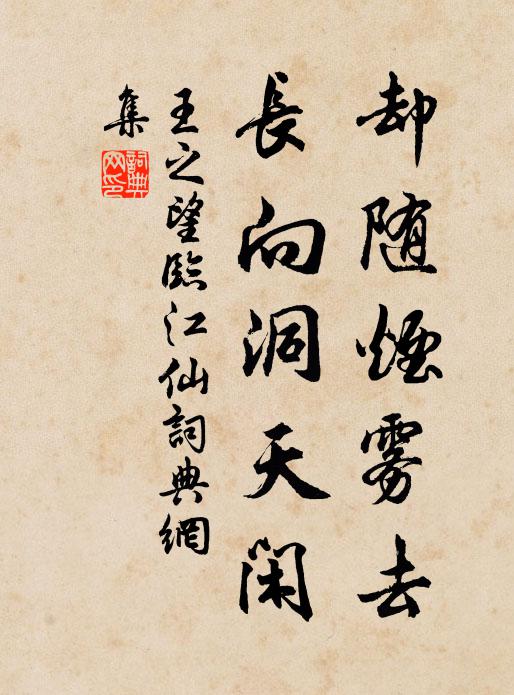 却随煙雾去
長向洞天閑
王之望臨江仙詞典網
集
詞典
网印